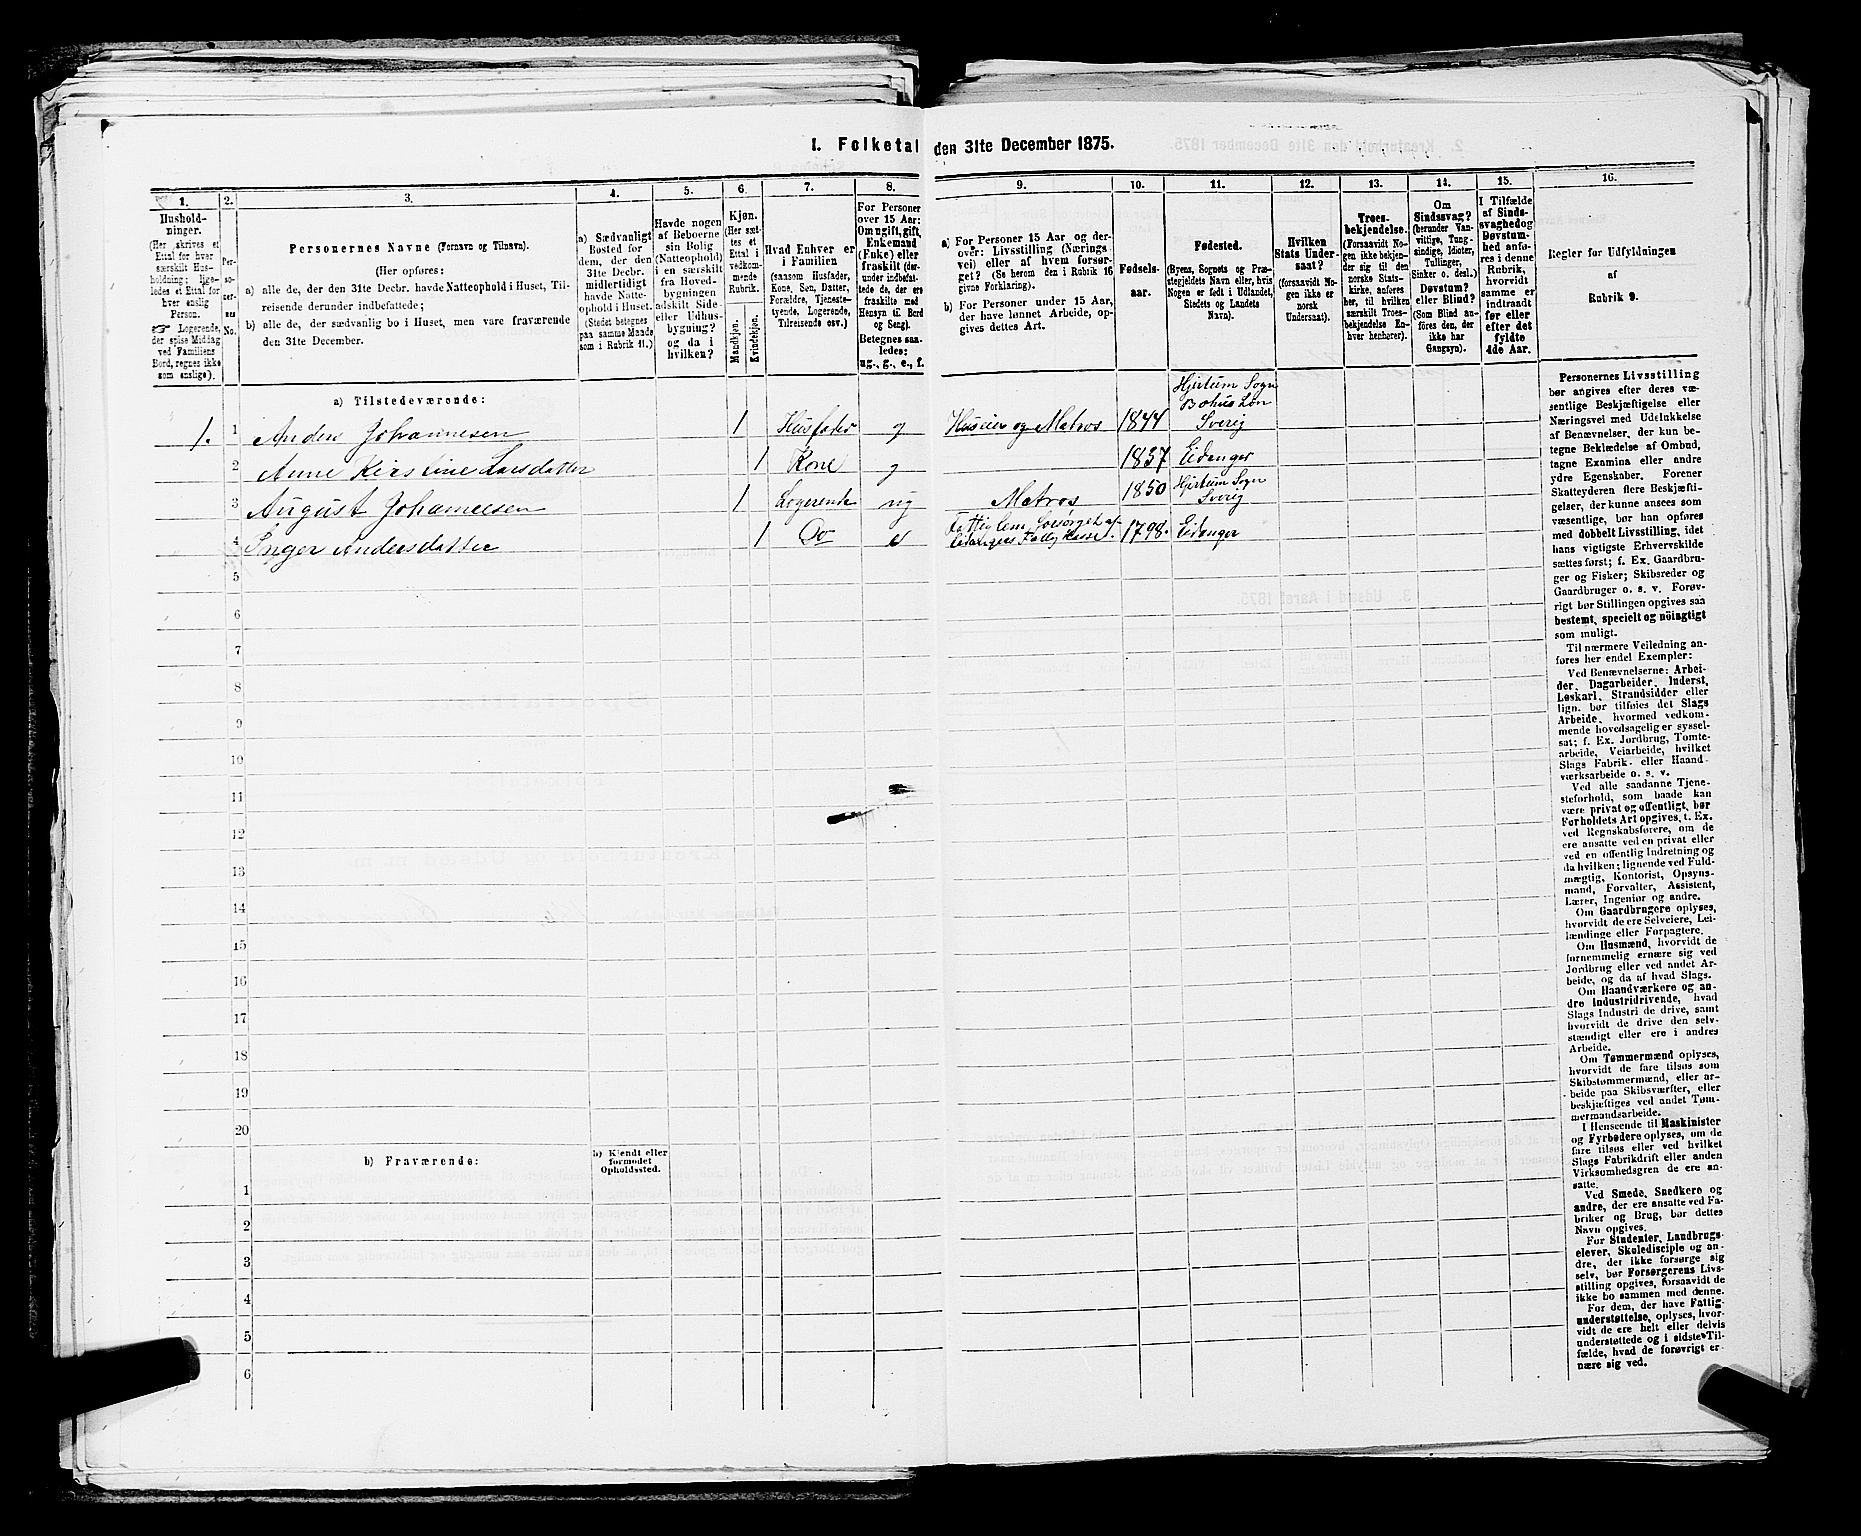 I. Folketal den 31te December 1875.
1.
2.
3.
4.
5.
6.
7.
8.
9.
10.
11.
12.
13.
14.
15.
16.
Hushold-
ninger.
(Her skrives et
Ettal for hver
særskilt Hus-
holdning; lige-
ledes et Ettal for
hver enslig
Person.
☞ Logerende,
der spise Middag
ved Familiens
Bord, regnes ikke
som enslige).
Per-
so-
ner-
nes
No.
Personernes Navne (Fornavn og Tilnavn).
(Her opføres:
a) alle de, der den 31te Decbr. havde Natteophold i Huset, Til-
reisende derunder indbefattede;
b) alle de, der sædvanlig bo i Huset, men vare fraværende
den 31te December.
a) Sædvanligt
Bosted for
dem, der den
31te Decbr.
midlertidigt
havde Natte-
ophold i Huset.
(Stedet betegnes
paa samme Maade
som i Rubrik 11.)
Havde nogen
af Beboerne
sin Bolig
(Natteophold)
i en særskilt
fra Hoved-
bygningen
adskilt Side-
eller Udhus-
bygning?
og da i
hvilken?
Kjøn.
(Her sæt-
tes et
Ettal i
vedkom-
mende
Rubrik.
Mandkjøn.
Kvindekjøn.
Hvad Enhver er
i Familien
(saasom Husfader,
Kone, Søn, Datter,
Forældre, Tjeneste-
tyende, Logerende,
Tilreisende osv.)
For Personer
over 15 Aar:
Om ugift, gift,
Enkemand
(Enke) eller
fraskilt (der-
under indbefat-
tede, de ere
fraskilte med
Hensyn til Bord
og Seng).
Betegnes saa-
ledes:
ug., g., e., f.
a) For Personer 15 Aar og der-
over: Livsstilling (Nærings-
vei) eller af hvem forsør-
get? (Se herom den i Rubrik 16
givne Forklaring).
b) For Personer under 15 Aar,
der have lønnet Arbeide, op-
gives dettes Art.
Fødsels-
aar.
Fødested.
(Byens, Sognets og Præ-
stegjeldets Navn eller, hvis
Nogen er født i Udlandet,
Stedets og Landets
Navn).
Hvilken
Stats Under-
saat?
(forsaavidt No-
gen ikke er
norsk
Undersaat).
Troes-
bekjendelse.
(Forsaavidt No-
gen ikke bekjen-
der sig til den
norske Stats-
kirke, anføres
her, til hvilken
særskilt Troes-
bekjendelse En-
hver henhører).
Om
Sindssvag?
(herunder Van-
vittige, Tung-
sindige, Idioter,
Tullinger,
Sinker o. desl.)
Døvstum?
eller Blind?
(Som Blind an-
føres den, der
ikke har
Gangsyn).
I Tilfælde
af Sinds-
svaghed og
Døvstum-
hed anfø-
res i denne
Rubrik,
hvorvidt
samme er
indtraadt
før eller
efter det
fyldte
4de Aar.
Regler for Udfyldningen
af
Rubrik 9.
a) Tilstedeværende:
Hjertum Sogn
Bohus Len
1. 1 Anders Johannesen 1 Husfader g Huseier og Matros 1844 Sverig
2 Anne Kirstine Larsdatter 1 Kone g 1837 Eidanger
3 August Johannesen 1 Logerende ug Matros 1850 Hjertum Sogn
Sverig
4 Inger Andersdatter 1 Do e Fattiglem forsørget af
Eidangers Fattigkasse. 1798. Eidanger
5
6
7
8
9
10
11
12
13
14
15
16
17
18
19
20
b) Fraværende:
b) Kjendt eller
formodet
Opholdssted.
1
2
3
4
5
6
Personernes Livsstilling
bør angives efter deres væ-
sentlige Beskjæftigelse eller
Næringsvei med Udelukkelse
af Benævnelser, der kun be-
tegne Beklædelse af Ombud,
tagne Examina eller andre
ydre Egenskaber. Forener
Skatteyderen flere Beskjæfti-
gelser, der kunne ansees som
væsentlige, bør han opføres
med dobbelt Livsstilling, idet
hans vigtigste Erhvervskilde
sættes først; f. Ex. Gaardbru-
ger og Fisker; Skibsreder og
Gaardbruger o. s. v. Forøv-
rigt bør Stillingen opgives saa
bestemt, specielt og nöiagtigt
som muligt.
Til nærmere Veiledning an-
føres her endel Exempler:
Ved Benævnelserne: Arbei-
der, Dagarbeider, Inderst,
Løskarl, Strandsidder eller
lign. bør tilføies det Slags
Arbeide, hvormed vedkom-
mende hovedsagelig er syssel-
sat; f. Ex. Jordbrug, Tomte-
arbeide, Veiarbeide, hvilket
Slags Fabrik- eller Haand-
værksarbeide o. s. v.
Ved alle saadanne Tjene-
steforhold, som baade kan
være privat og offentligt, bør
Forholdets Art opgives, t. Ex.
ved Regnskabsførere, om de
ere ansatte ved en privat eller
ved en offentlig Indretning og
da hvilken; lignende ved Fuld-
mægtig, Kontorist, Opsyns-
mand, Forvalter, Assistent,
Lærer, Ingeniør og andre.
Om Gaardbrugere oplyses,
hvorvidt de ere Selveiere, Lei-
lændinge eller Forpagtere.
Om Husmænd, hvorvidt de
fornemmelig ernære sig ved
Jordbrug eller ved andet Ar-
beide, og da af hvad Slags.
Om Haandværkere og an-
dre Industridrivende, hvad
Slags Industri de drive, samt
hvorvidt de drive den selv-
stændigt eller ere i andres
Arbeide.
Om Tømmermænd oplyses,
hvorvidt de fare tilsøs som
Skibstømmermænd, eller ar-
beide paa Skibsværfter, eller
beskjæftiges ved andet Tøm-
mermandsarbeide.
I Henseende til Maskinister
og Fyrbødere oplyses, om de
fare tilsøs eller ved hvilket
Slags Fabrikdrift eller anden
Virksomhedsgren de ere an-
satte.
Ved Smede, Snedkere og
andre, der ere ansatte ved Fa-
briker og Brug, bør dettes
Navn opgives.
For Studenter, Landbrugs-
elever, Skoledisciple og an-
dre, der ikke forsørge sig
selv, bør Forsørgerens Livs-
stilling opgives, forsaavidt de
ikke bo sammen med denne.
For dem, der have Fattig-
understøttelse, oplyses, hvor-
vidt de ere helt eller delvis
understøttede og i sidste Til-
fælde, hvad de forøvrigt er-
nære sig ved.